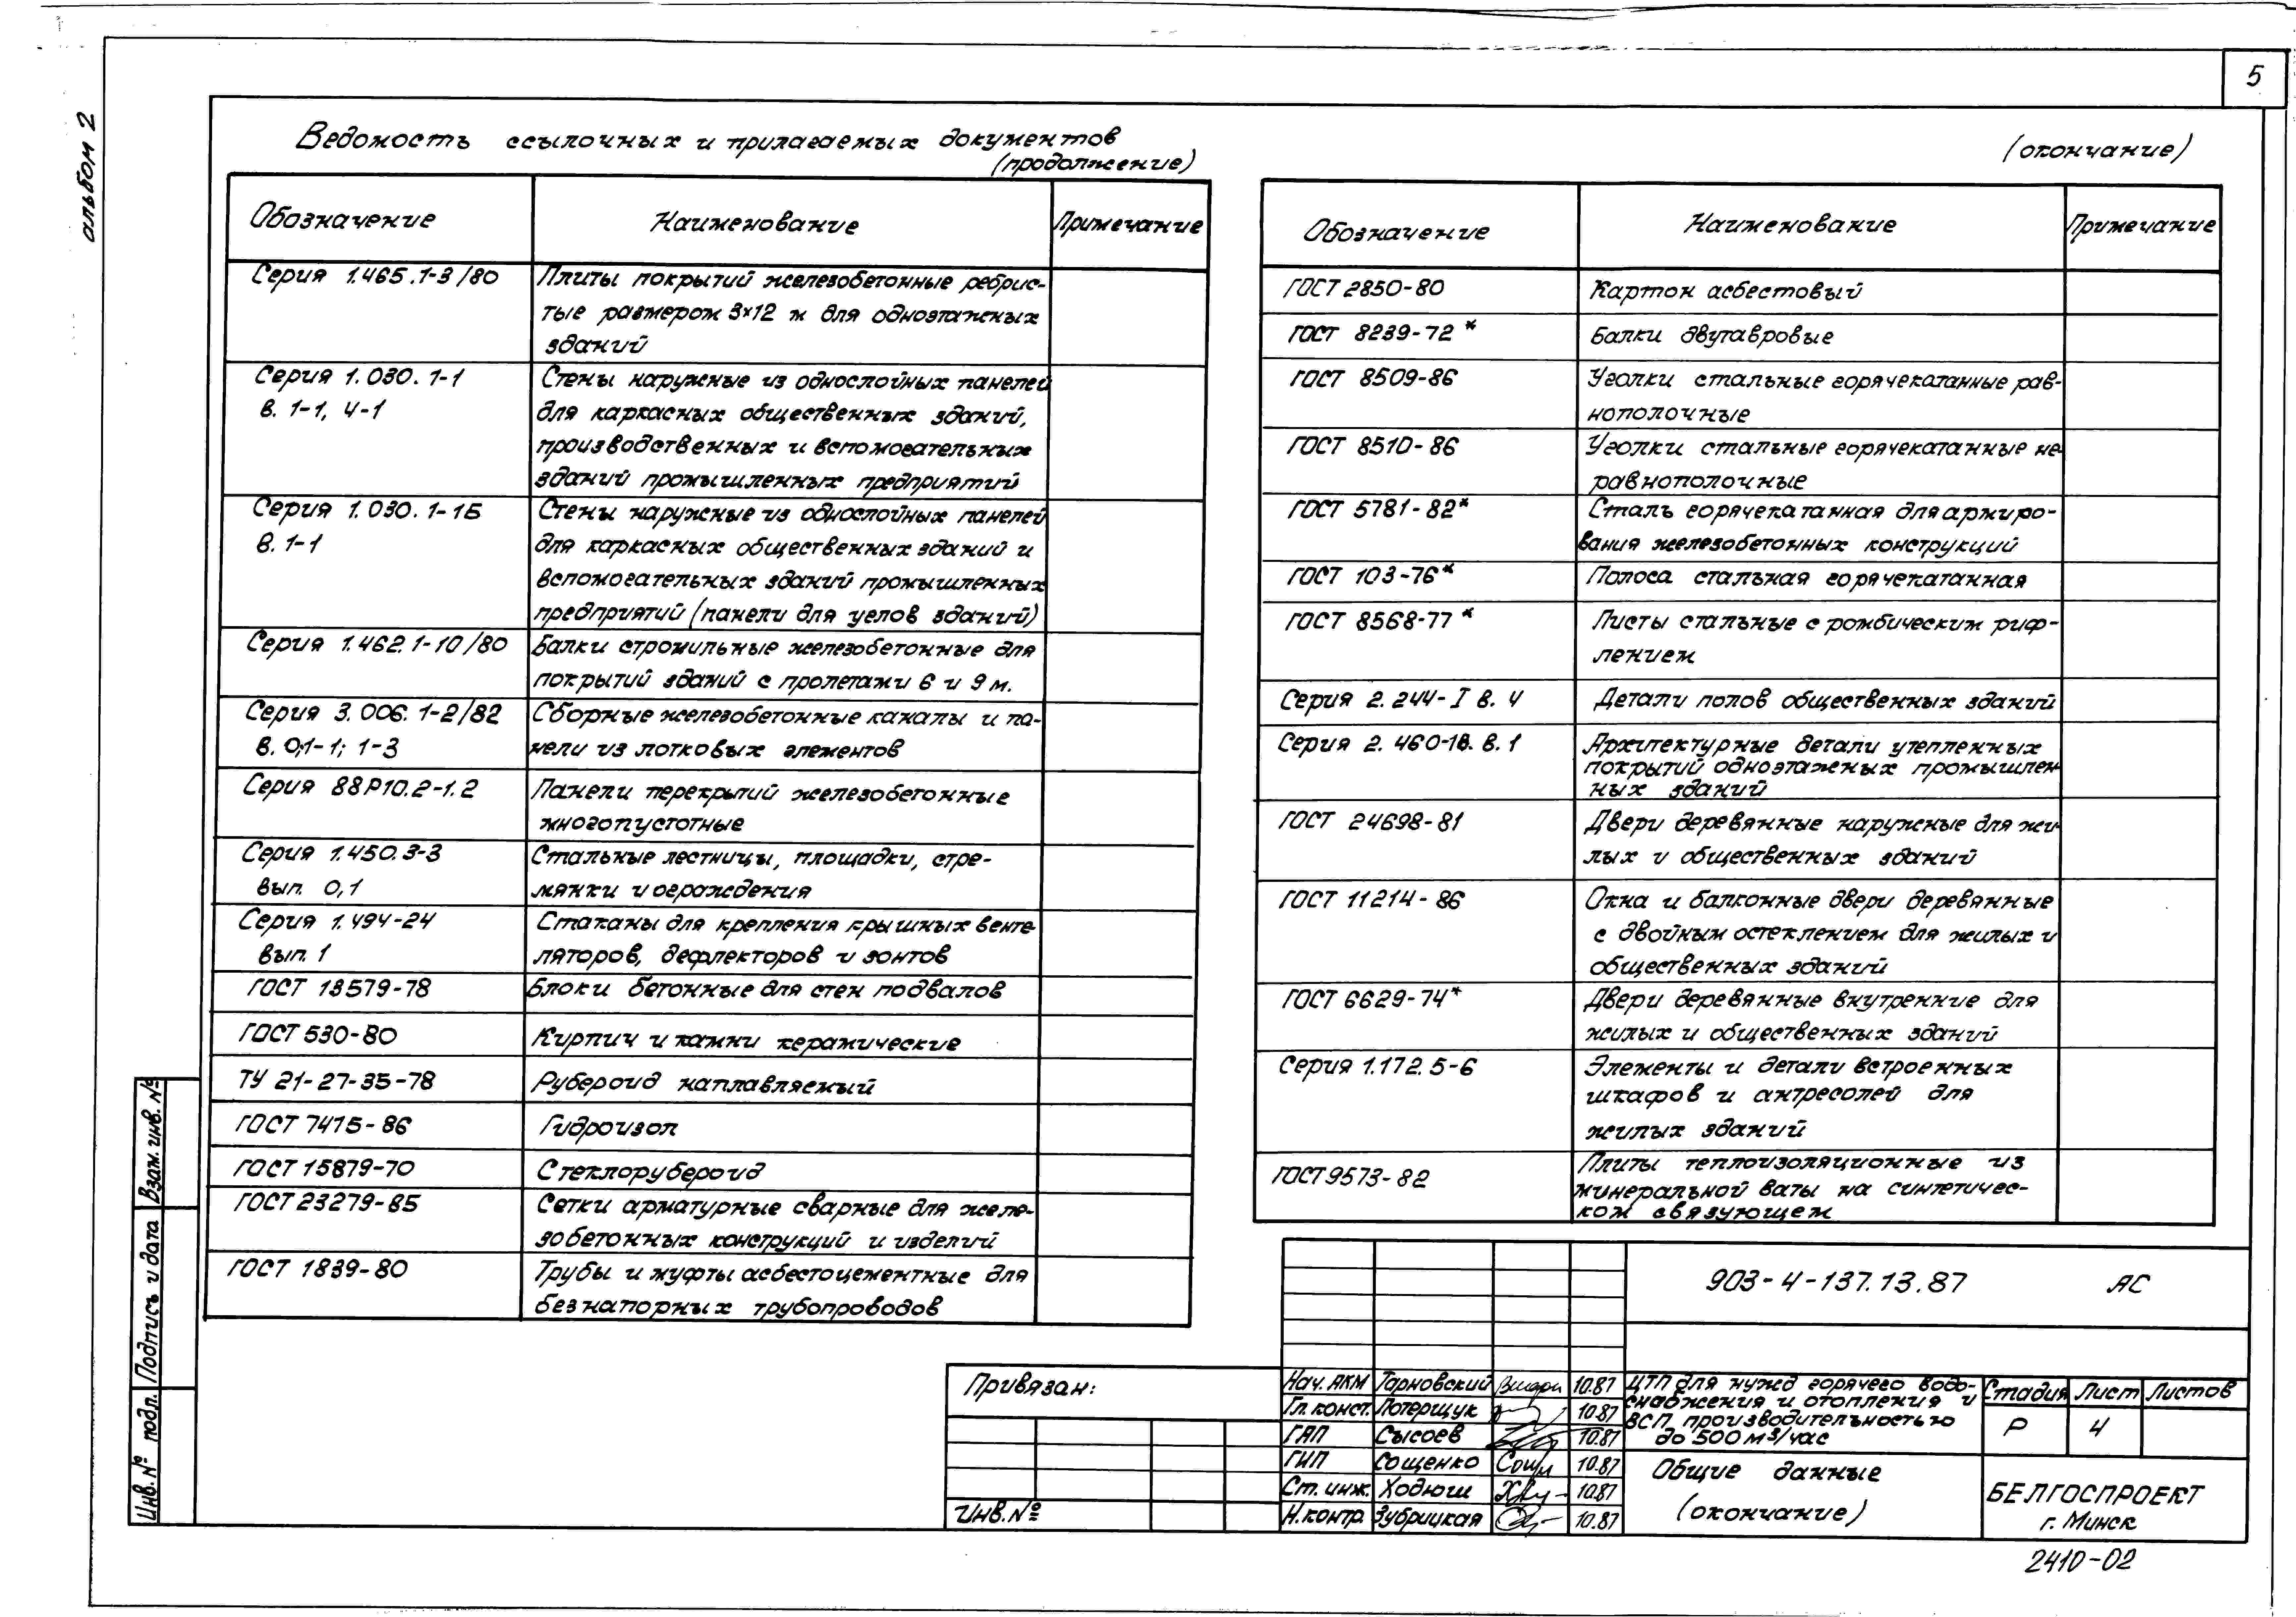 5
альбом 2
Ведомость ссылочных и прилагаемых документов
(продолжение)
Обозначение Наименование Примечание
Серия 1.465.1-3/80 Плиты покрытий железобетонные ребрис-
тые размером 3×12 м для одноэтажных
зданий
Серия 1.030.1-1 Стены наружные из однослойных панелей
в. 1-1, 4-1 для каркасных общественных зданий,
производственных и вспомогательных
зданий промышленных предприятий
Серия 1.030.1-1Б Стены наружные из однослойных панелей
в. 1-1 для каркасных общественных зданий и
вспомогательных зданий промышленных
предприятий (панели для углов зданий)
Серия 1.462.1-10/80 Балки стропильные железобетонные для
покрытий зданий с пролетами 6 и 9 м.
Серия 3.006.1-2/82 Сборные железобетонные каналы и па-
в. 0;1-1; 1-3 нели из лотковых элементов
Серия 88Р10.2-1.2 Панели перекрытий железобетонные
многопустотные
Серия 1.450.3-3 Стальные лестницы, площадки, стре-
вып. 0,1 мянки и ограждения
Серия 1.494-24 Стаканы для крепления крышных венти
вып. 1 ляторов, дефлекторов и зонтов
ГОСТ 13579-78 Блоки бетонные для стен подвалов
ГОСТ 530-80 Кирпич и камни керамические
ТУ 21-27-35-78 Рубероид наплавляемый
ГОСТ 7415-86 Гидроизол
ГОСТ 15879-70 Стеклорубероид
ГОСТ 23279-85 Сетки арматурные сварные для желе-
зобетонных конструкций и изделий
ГОСТ 1839-80 Трубы и муфты асбестоцементные для
безнапорных трубопроводов
(окончание)
Обозначение Наименование Примечание
ГОСТ 2850-80 Картон асбестовый
ГОСТ 8239-72* Балки двутавровые
ГОСТ 8509-86 Уголки стальные горячекатанные рав-
нополочные
ГОСТ 8510-86 Уголки стальные горячекатанные не
равнополочные
ГОСТ 5781-82* Сталь горячекатанная для армиро-
вания железобетонных конструкций
ГОСТ 103-76* Полоса стальная горячекатанная
ГОСТ 8568-77* Листы стальные с ромбическим риф-
лением
Серия 2.244-I в. 4 Детали полов общественных зданий
Серия 2.460-18. в. 1 Архитектурные детали утепленных
покрытий одноэтажных промышлен
ных зданий
ГОСТ 24698-81 Двери деревянные наружные для жи
лых и общественных зданий
ГОСТ 11214-86 Окна и балконные двери деревянные
с двойным остеклением для жилых и
общественных зданий
ГОСТ 6629-74* Двери деревянные внутренние для
жилых и общественных зданий
Серия 1.172.5-6 Элементы и детали встроенных
шкафов и антресолей для
жилых зданий
ГОСТ 9573-82 Плиты теплоизоляционные из
минеральной ваты на синтетичес-
ком связующем
Взам. инв. №
Подпись и дата
Инв. № подл.
Привязан:
Инв. №
903-4-137.13.87 АС
Нач. АКМ Тарновский 10.87
Гл. конст. Потерщук 10.87
ГАП Сысоев 10.87
ГИП Сощенко 10.87
Ст. инж. Ходюш 10.87
Н. контр. Зубрицкая 10.87
ЦТП для нужд горячего водо-
снабжения и отопления и
ВСП производительностью
до 500 м³/час
Стадия Лист Листов
Р 4
Общие данные
(окончание)
БЕЛГОСПРОЕКТ
г. Минск
2410-02